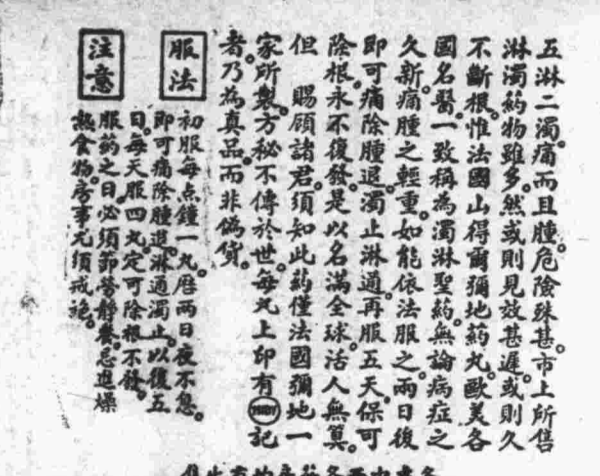 五淋二濁。痛而且腫。危險殊甚。市上所售
淋濁葯物雖多。然或則見效甚遲。或則久
不斷根。惟法國山得爾彌地葯丸。歐美各
國名醫。一致稱為濁淋聖葯。無論病症之
久新。痛腫之輕重。如能依法服之。兩日後
即可痛除腫退。濁止淋通。再服五天。保可
除根。永不復發。是以名滿全球。活人無算。
但 賜顧諸君。須知此葯僅法國彌地一
家所製。方秘不傳於世。每丸上印有 MIDY 記
者。乃為真品。而非偽貨。
服法
初服每点鐘一丸。歷兩日夜不息。
即可痛除腫退。淋通濁止。以後五
日。每天服四丸。定可除根不發。
注意
服葯之日。必須節勞靜養。忌進燥
熱食物。房事尤須戒絕。